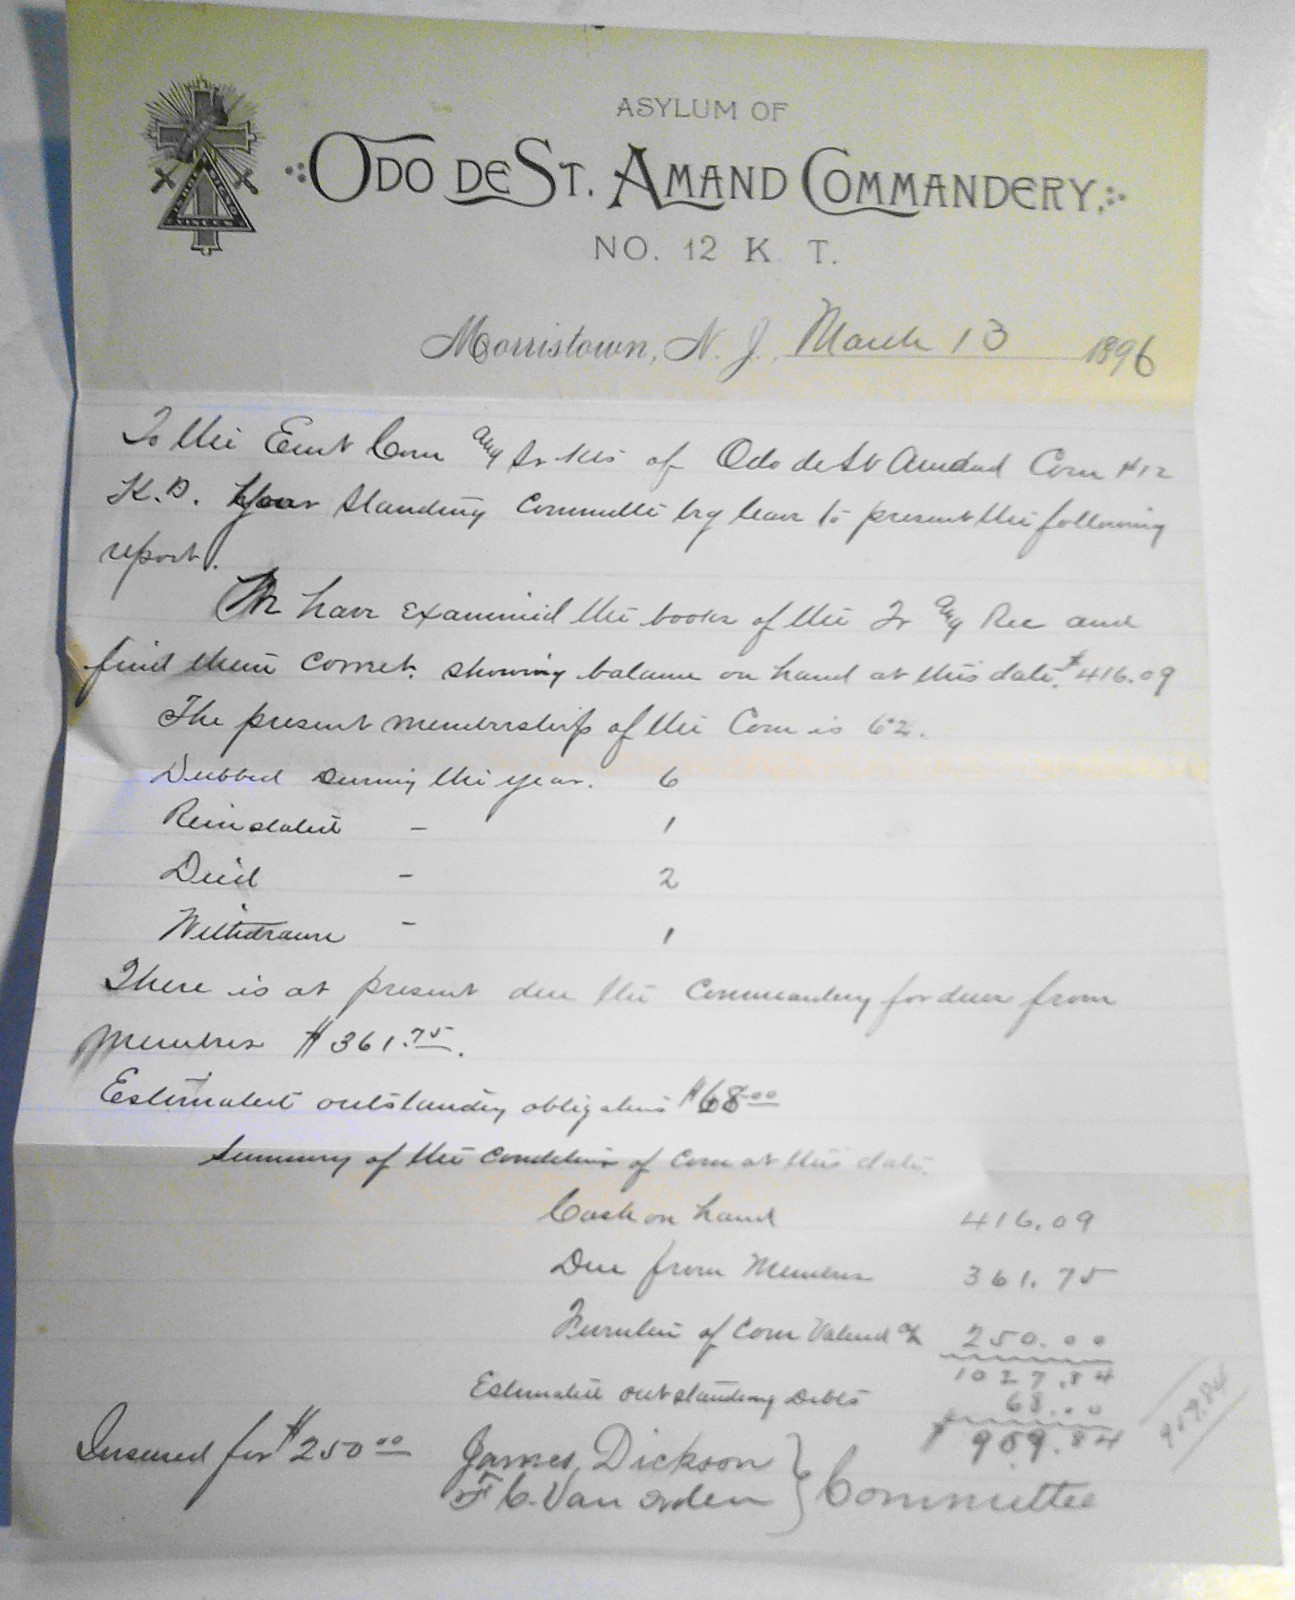 ASYLUM OF
ODO DE ST. AMAND COMMANDERY,
NO. 12 K. T.
Morristown, N. J., March 13 1896
To the Emt Com and Sr Kts of Odo de St Amand Com #12
K.T. Your Standing Committe beg leave to present the following
report.
We have examined the books of the Tr and Rec and
find them correct. showing balance on hand at this date. $416.09
The present membership of the Com is 62.
Dubbed during the year. 6
Reinstated - 1
Died - 2
Withdrawn - 1
There is at present due the Commandery for dues from
Members $361.75.
Estimated outstanding obligations $68 00
Summary of the Condition of Com at this date.
Cash on hand 416.09
Due from Members 361.75
Furniture of Com Valued at 250.00
1027.84
Estimated outstanding Debts 68.00
$ 909.84
909.84
Insured for $250 00
James Dickson
F C. Van Orden } Committee